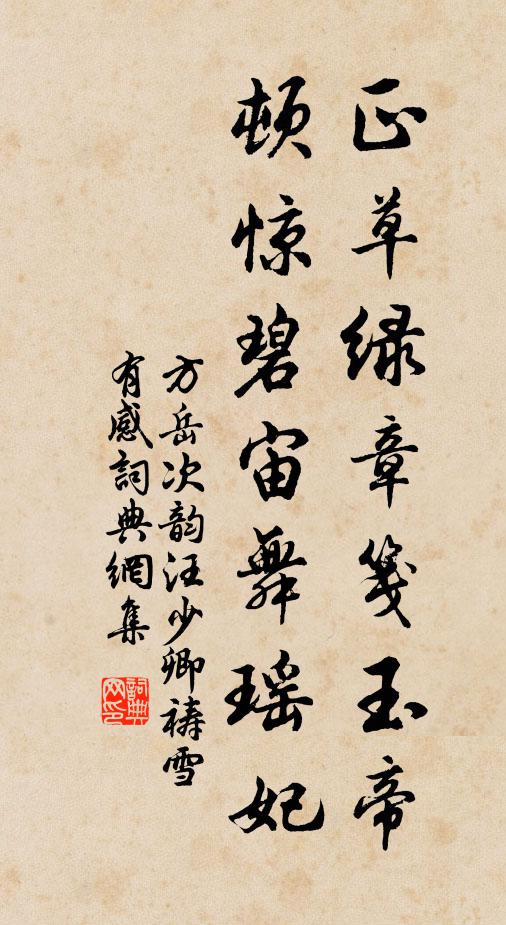 正草绿章笺玉帝
顿惊碧宙舞瑶妃
方岳次韵汪少卿祷雪
有感詞典網集
詞典
网印